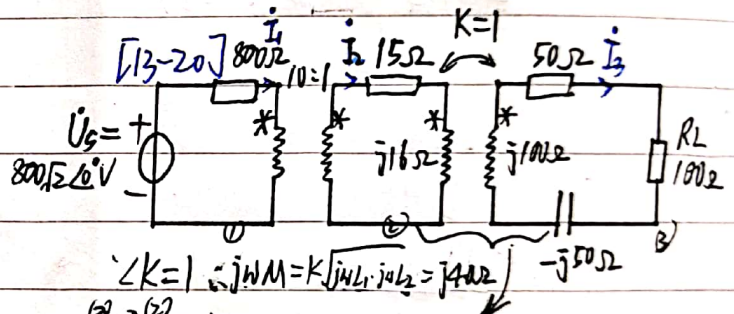 K=1
[13-20] 800Ω İ₁ 10:1 İ₂ 15Ω 50Ω İ₃
U̇s= + * * * *
800√2∠0°V j16Ω j100Ω RL
- 100Ω
① ② -j50Ω ③
∵K=1 ∴jωM=K√jωL₁·jωL₂=j40Ω